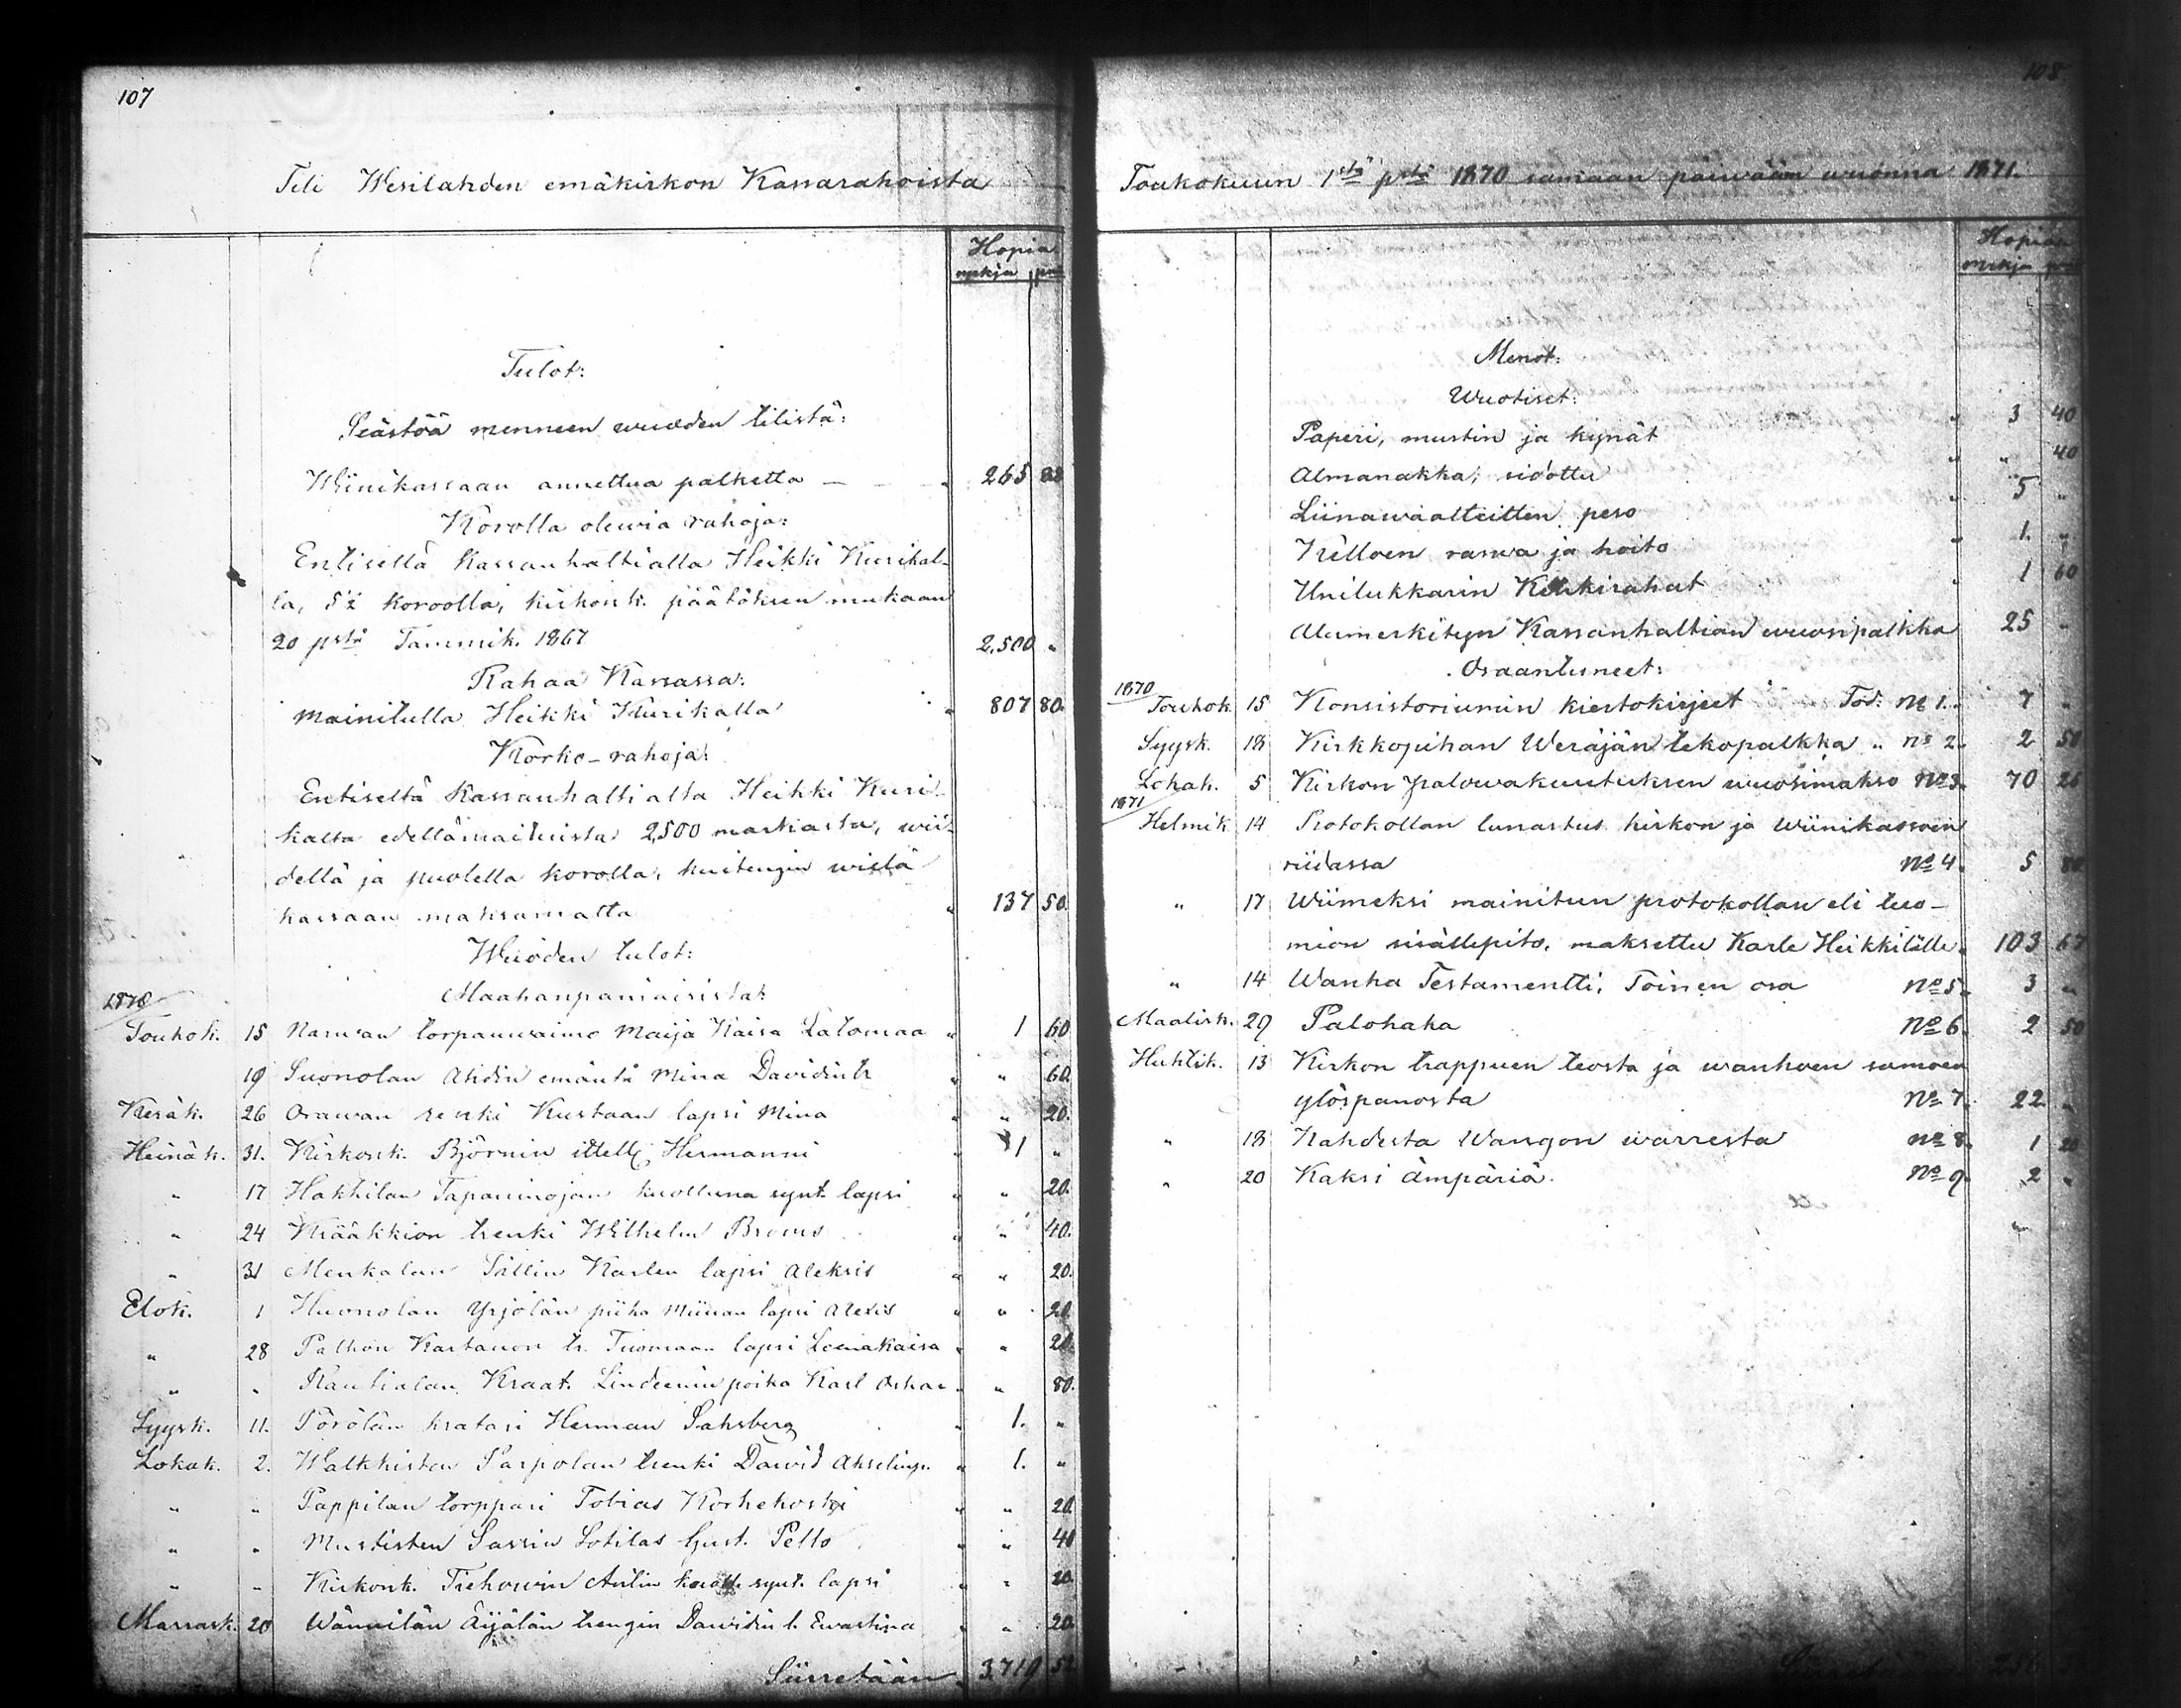 107
Tili Wesilahden emäkirkon Kassarahoista
Hopia
mrkja pnä
Tulot:
Seästöä menneen wuoden tilistä:
Wiinikassaan annettua palketta — " 265 82
Korolla olewia rahoja:
Entisellä Kassanhaltialla Heikki Kurikal-
la, 5½ Koroolla, kirkonk. päätöksen mukaan
20 pstä Tammik. 1867 2,500 "
Rahaa Kassassa:
mainitulla Heikki Kurikalla " 807 80.
Korko-rahoja:
Entiseltä Kassanhaltialta Heikki Kuri-
kalta edellämainituista 2,500 markasta, wii-
dellä ja puolella korolla, kuitengin wielä
kassaan maksamatta " 137 50.
Wuoden tulot:
Maahanpaniaisista:
1870
Toukok. 15 Narwan torpanwaimo Maija Kaisa Latomaa " 1 60
19 Suonolan Ahdin emäntä Mina Davidintr " " 60.
Kesäk. 26 Orawan renki Kustaan lapsi Mina " " 20.
Heinäk. 31. Kirkonk. Björnin ittell. Hermanni " 1 "
" 17 Hakkilan Tapaninojan kuolluna synt. lapsi " " 20.
" 24 Krääkkiön trenki Wilhelm Broms " " 40.
" 31 Menkalan Sällin Karlen lapsi Aleksis " " 20.
Elok. 1 Huonolan Yrjölän piika Miinan lapsi Alexis " " 20
" 28 Palhon Kartanon tr. Tuomaan lapsi Leenakaisa " " 20.
" " Rautialan Kraat. Lindeenin poika Karl Oskar " " 80.
Syysk. 11. Pörölän kratari Herman Sahsberg " 1. "
Lokak. 2. Walkkistan Parpolan trenki Dawid Akselinp. " 1. "
" " Pappilan torppari Tobias Korkekoski " " 20.
" " Mustisten Sassin Sotilas Gust. Pelto " " 40
" " Kirkonk. Tiehowin Antin kuoll. synt. lapsi " " 20.
Marrask. 20 Wännilän Äijälän trengin Dawidin l. Ewastina " " 20.
Siirretään " 3,719 52
108
Toukokuun 1stä pstä 1870 samaan päiwään wuonna 1871.
Hopia
mrkja pnä
Menot:
Wuotiset:
Paperi, mustin ja kynät " 3 40
Almanakka, sidottu " " 40
Liinawaatteitten peso " 5 "
Kelloen raswa ja hoito " 1. "
Unilukkarin Kenkirahat " 1 60
Alemerkityn Kassanhaltian wuosipalkka 25 "
Osaantuneet:
1870
Toukok. 15 Konsistoriumin kiertokirjeet Tod. No 1. 7 "
Syysk. 18 Kirkkopihan Weräjän tekopalkka " No 2. 2 50
Lokak. 5 Kirkon palowakuutuksen wuosimakso No 3. 70 26
1871
Helmik. 14 Protokollan lunastus kirkon ja wiinikassoin
riidassa No 4. 5 80
" 17 Wiimeksi mainitun protokollan eli tuo-
mion sisällepito, maksettu Karle Heikkilälle. 103 67
" 14 Wanha Testamentti, Toinen osa No 5. 3 "
Maalisk. 29 Palohaka No 6. 2 50
Huhtik. 13 Kirkon trappuen teosta ja wanhoen samoen
ylöspanosta No 7. 22 "
" 18 Kahdesta Wangon warresta No 8. 1 20
" 20 Kaksi ämpäriä. No 9. 2 "
Siirretään 256